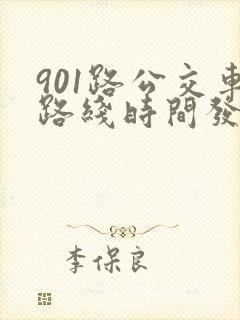 901路公交車
路綫時間發
李保良